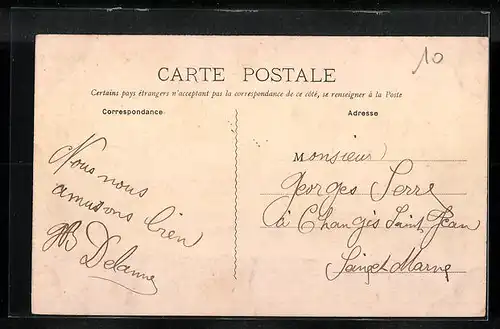 10
CARTE POSTALE
Certains pays étrangers n'acceptant pas la correspondance de ce côté, se renseigner à la Poste
Correspondance
Adresse
Nous nous
amusons bien
Delanne
Monsieur
Georges Serré
à Changis Saint Jean
Seine et Marne